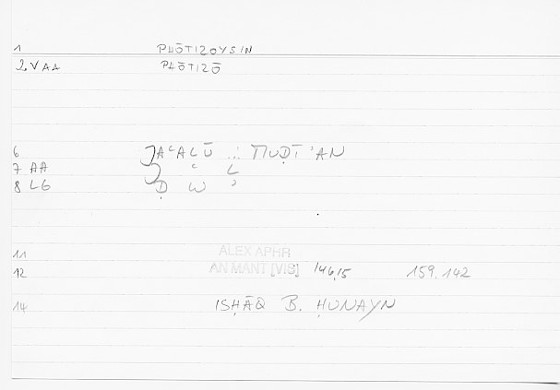 1 PHŌTIZOYSIN
2 VAA PHŌTIZŌ
6 JAʿALŪ ... MUḌĪʾAN
7 AA J ʿ L
8 LG Ḍ W ʾ
11 ALEX APHR
12 AN MANT [VIS] 146,15 159.142
14 ISḤĀQ B. ḤUNAYN